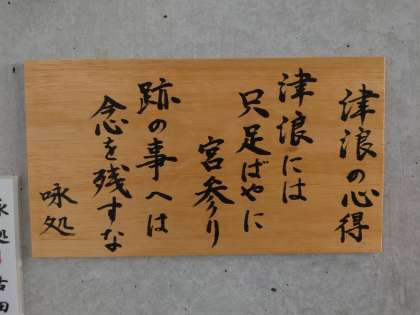 津浪の心得
津浪には
只足ばやに
宮参り
跡の事へは
念を残すな
咏処
咏処
吉田